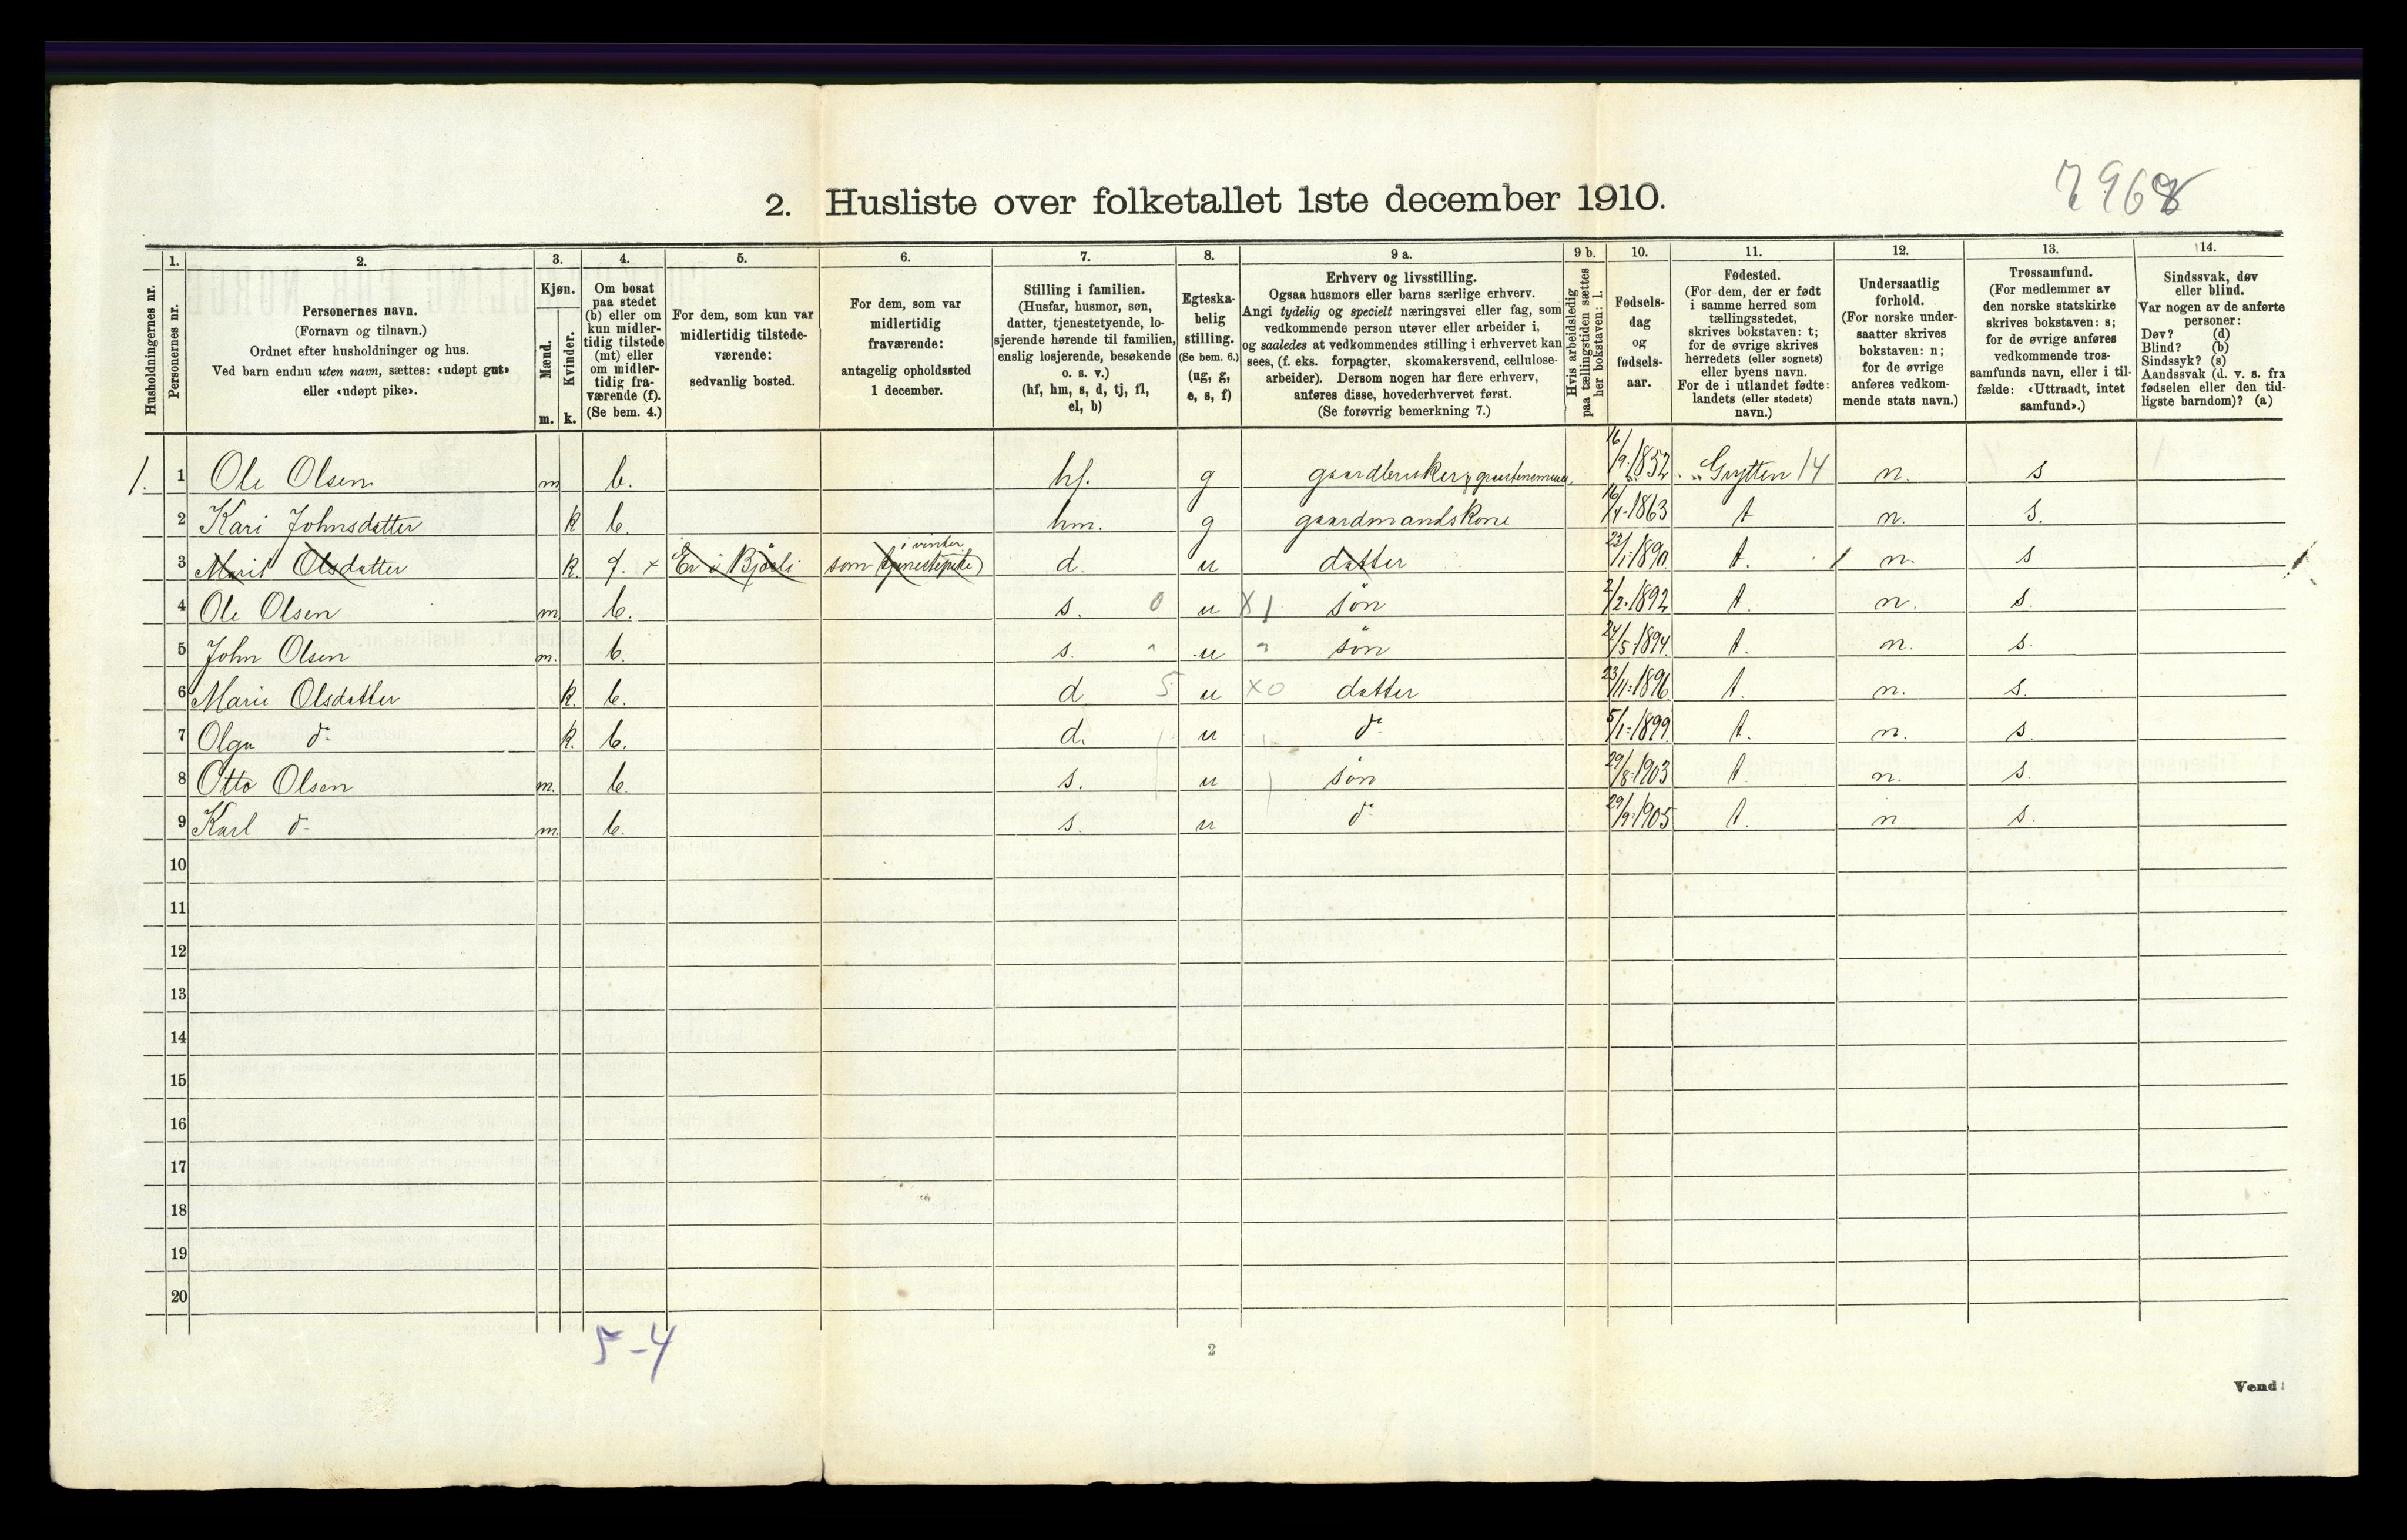 7968
2. Husliste over folketallet 1ste december 1910.
Husholdningernes nr.
1. Personernes nr.
2. Personernes navn.
(Fornavn og tilnavn.)
Ordnet efter husholdninger og hus.
Ved barn endnu uten navn, sættes: «udøpt gut»
eller «udøpt pike».
3. Kjøn.
Mænd. m.
Kvinder. k.
4. Om bosat
paa stedet
(b) eller om
kun midler-
tidig tilstede
(mt) eller
om midler-
tidig fra-
værende (f).
(Se bem. 4.)
5. For dem, som kun var
midlertidig tilstede-
værende:
sedvanlig bosted.
6. For dem, som var
midlertidig
fraværende:
antagelig opholdssted
1 december.
7. Stilling i familien.
(Husfar, husmor, søn,
datter, tjenestetyende, lo-
sjerende hørende til familien,
enslig losjerende, besøkende
o. s. v.)
(hf, hm, s, d, tj, fl,
el, b)
8. Egteska-
belig
stilling.
(Se bem. 6.)
(ug, g,
e, s, f)
9 a. Erhverv og livsstilling.
Ogsaa husmors eller barns særlige erhverv.
Angi tydelig og specielt næringsvei eller fag, som
vedkommende person utøver eller arbeider i,
og saaledes at vedkommendes stilling i erhvervet kan
sees, (f. eks. forpagter, skomakersvend, cellulose-
arbeider). Dersom nogen har flere erhverv,
anføres disse, hovederhvervet først.
(Se forøvrig bemerkning 7.)
9 b. Hvis arbeidsledig
paa tællingstiden sættes
her bokstaven: l.
10. Fødsels-
dag
og
fødsels-
aar.
11. Fødested.
(For dem, der er født
i samme herred som
tællingsstedet,
skrives bokstaven: t;
for de øvrige skrives
herredets (eller sognets)
eller byens navn.
For de i utlandet fødte:
landets (eller stedets)
navn.)
12. Undersaatlig
forhold.
(For norske under-
saatter skrives
bokstaven: n;
for de øvrige
anføres vedkom-
mende stats navn.)
13. Trossamfund.
(For medlemmer av
den norske statskirke
skrives bokstaven: s;
for de øvrige anføres
vedkommende tros-
samfunds navn, eller i til-
fælde: «Uttraadt, intet
samfund».)
14. Sindssvak, døv
eller blind.
Var nogen av de anførte
personer:
Døv? (d)
Blind? (b)
Sindssyk? (s)
Aandssvak (d. v. s. fra
fødselen eller den tid-
ligste barndom)? (a)
1. 1 Ole Olsen m b. hf. g gaardbruker 16/9 1852 Grytten 14 n. s
2 Kari Johnsdatter k b. hm. g gaardmandskone 16/4 1863 t n. s.
3 Marit Olsdatter k. f. x Er i Bjorli som tjenestepike) i vinter d. u datter 23/1 1890 t. n. s
4 Ole Olsen m b. s. 0 u x1 søn 2/2 1892 t. n. s.
5 John Olsen m. b. s. " u " søn 24/5 1894 t. n. s.
6 Marie Olsdatter k. b. d 5 u x0 datter 23/11 1896 t. n. s.
7 Olga do k. b. d. u do 5/1 1899 t. n. s.
8 Otto Olsen m. b. s. u søn 29/8 1903 t. n. s.
9 Karl do m. b. s. u do 29/9 1905 t. n s.
10
11
12
13
14
15
16
17
18
19
20
5-4
2
Vend!